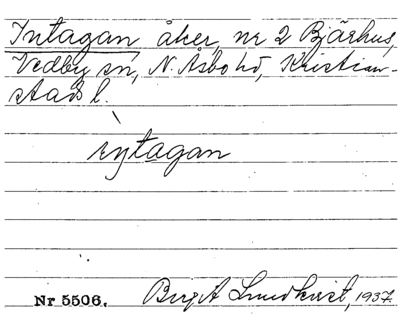 Intagan, åker, nr 2 Bjärhus,
Vedby sn, N. Åsbo hd, Kristian-
stads l.
iŋtagan
Nr 5506. Birgit Lundkvist, 1937.